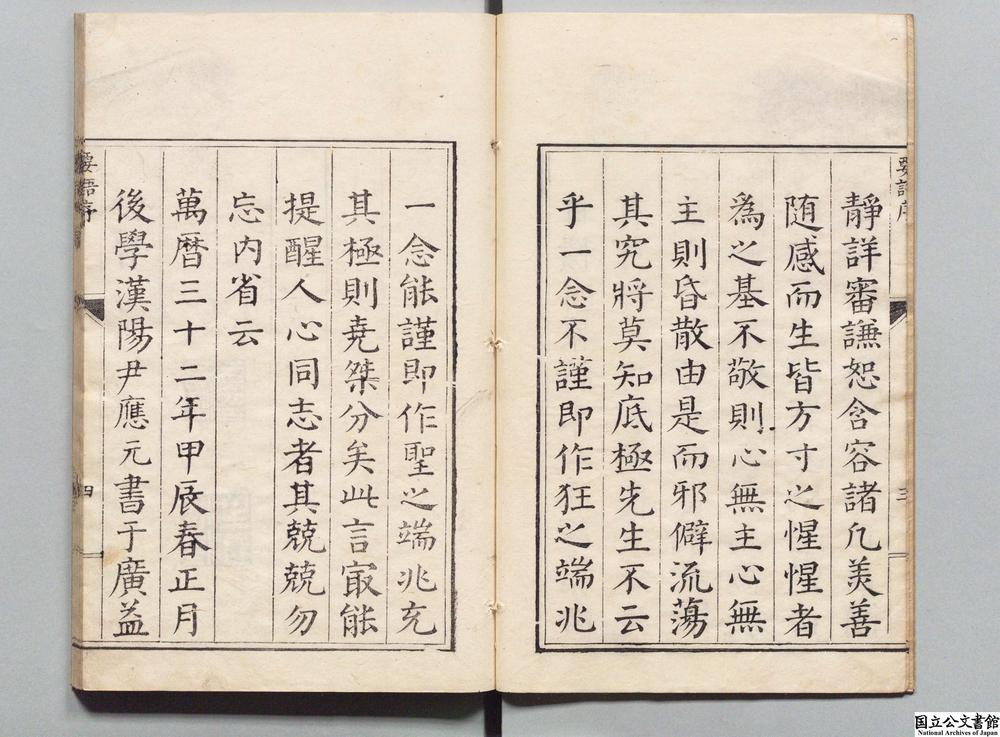 要語序
三
靜詳審謙恕含容諸凡美善
随感而生皆方寸之惺惺者
為之基不敬則心無主心無
主則昏散由是而邪僻流蕩
其究將莫知底極先生不云
乎一念不謹即作狂之端兆
一念能謹即作聖之端兆充
其極則堯桀分矣此言㝡能
提醒人心同志者其兢兢勿
忘内省云
萬曆三十二年甲辰春正月
後學漢陽尹應元書于廣益
要語序
四
国立公文書館
National Archives of Japan